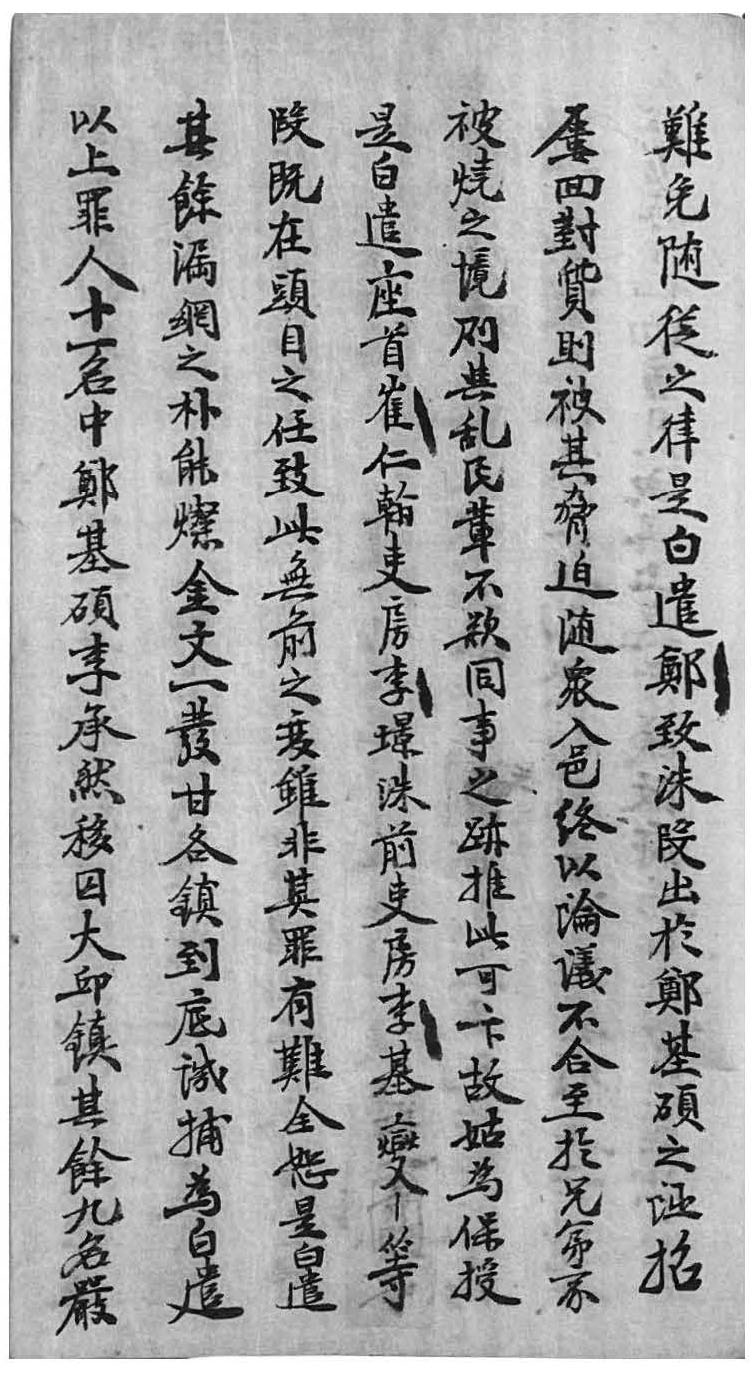 難免随從之律是白遣鄭致洙段出於鄭基碩之誣招
屢回對質則被其脅迫随衆入邑終以論議不合至於兄弟家
被燒之境則其乱民輩不欲同事之跡推此可卞故姑爲保授
是白遣座首崔仁翰吏房李璟洙前吏房李基燮等
段既在頭目之任致此無前之変雖非其罪有難全恕是白遣
其餘漏網之朴能燦金文一發甘各鎮到底詗捕爲白遣
以上罪人十一名中鄭基碩李承然移囚大邱鎮其餘九名嚴